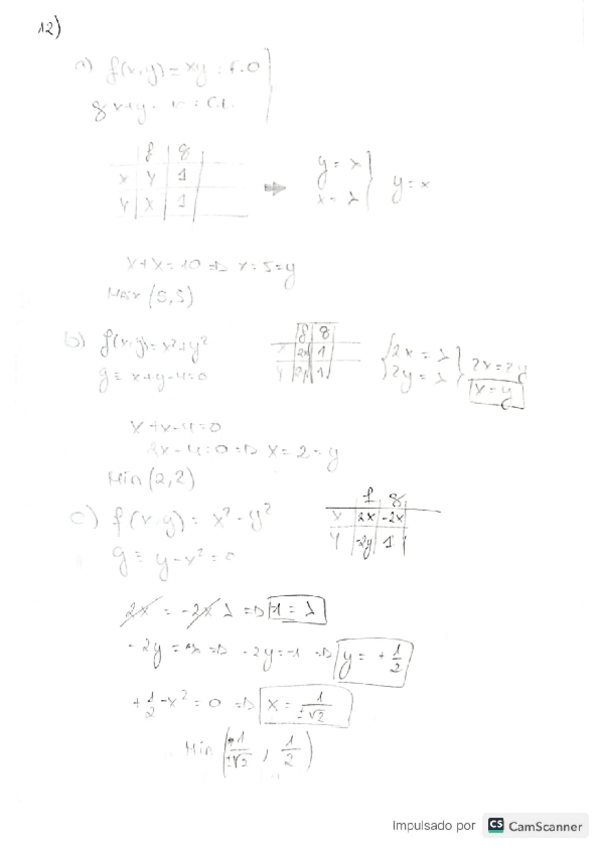 12)
a) f(x,y) = xy : F.O
g x+y
f | g
x | y | 1
y | x | 1
y = λ
x = λ
y = x
x + x = 10 => x = 5 = y
Max (5,5)
b) f(x,y) = x² + y²
g ≡ x + y - 4 = 0
f | g
x | 2x | 1
y | 2y | 1
2x = λ
2y = λ
2x = 2y
x = y
x + x - 4 = 0
2x - 4 = 0 => x = 2 = y
Min (2,2)
c) f(x,y) = x² - y²
g ≡ y - x² = 0
f | g
x | 2x | -2x
y | -2y | 1
2x = -2x λ => -1 = λ
-2y = => -2y = -1 => y = + 1/2
+ 1/2 - x² = 0 => x = 1/±√2
Min (1/±√2 , 1/2)
Impulsado por CS CamScanner